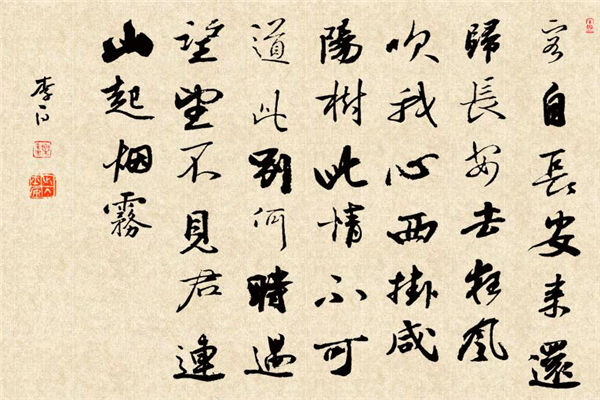 客自長安來還
歸長安去狂風
吹我心西掛咸
陽樹此情不可
道此別何時遇
望望不見君連
山起烟霧
李白